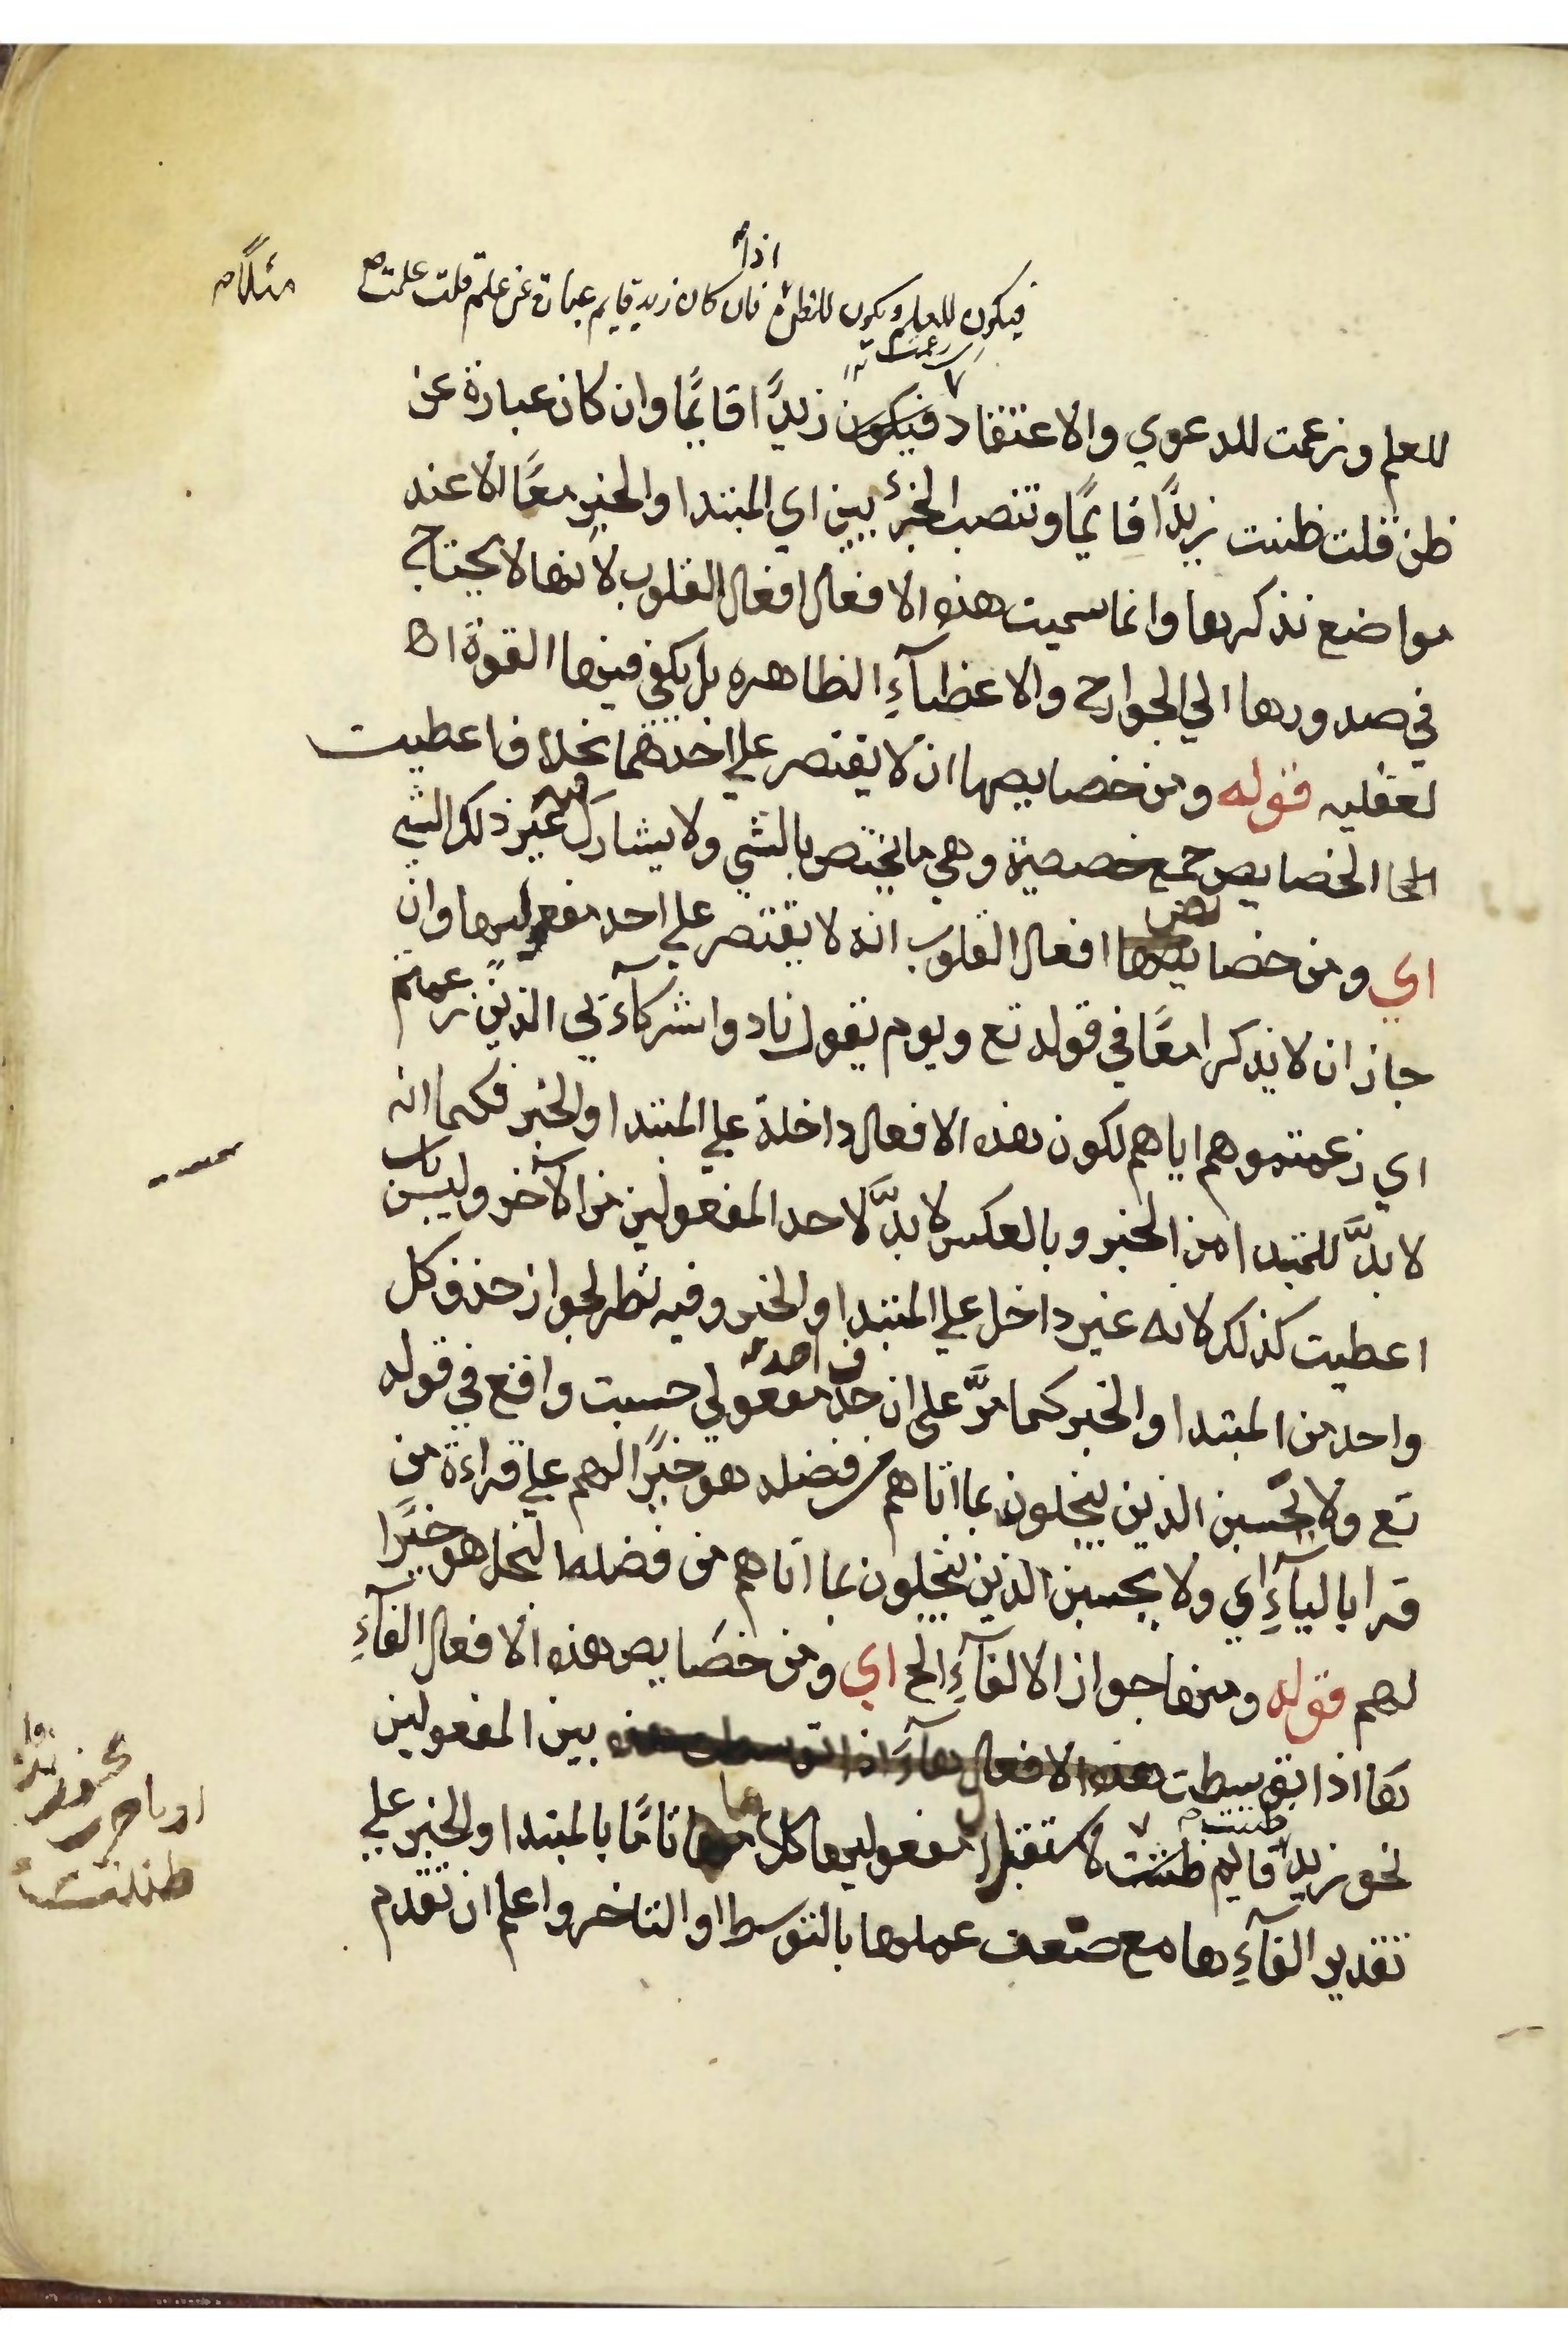 اذا
فيكون للعلم ويكون للظن فان كان زيد قايم عبارة عن علم قلت علمت صح مثلا
زعمت
للعلم وزعمت للدعوي والاعتقاد فيكون زيدًا قايمًا وان كان عبارة عن
ظن قلت ظننت زيدًا قايمًا وتنصب الجزئيين اي المبتدا والخبر معًا الا عند
مواضع نذكرها وانما سميت هذه الافعال افعال القلوب لانها لا يحتاج
في صدورها الي الجوارح والاعضآءِ الظاهره بل يكفي فيها القوة ا
لعقليه قوله ومن خصايصها ان لا يقتصر علي احدهما بخلاف اعطيت
الخ الخصايص جمع خصصية وهي ما يختص بالشي ولا يشارك فيه غير ذلك الشي
اي ومن خصايصها افعال القلوب انه لا يقتصر علي احد مفعوليها وان
جاز ان لا يذكرا معًا في قوله تع ويوم يقول نادوا شركآءي الذين زعمتم
اي زعمتموهم اياهم لكون هذه الافعال داخلة علي المبتدا والخبر فكما انه
لا بدَّ للمبتدا من الخبر وبالعكس لا بدَّ لاحد المفعولين من الآخر وليس باب
اعطيت كذلك لانه غير داخل علي المبتدا والخبر وفيه نظر لجواز حذف كل
واحد من المبتدا والخبر كما مرَّ علي ان حذف احد مفعولي حسبت واقع في قوله
تع ولا تحسبن الذين يبخلون بما اتاهم من فضله هو خيرًا لهم علي قراءة من
قرا باليآءِ اي ولا يحسبن الذين يبخلون بما اتاهم من فضله البخل هو خيرًا
لهم قوله ومنها جواز الالغآءِ الخ اي ومن خصايص هذه الافعال الغآءِ
ها اذا توسطت هذه الافعال بين المفعولين
نحو زيد قايم ظننت لاستقلال مفعوليها كلاما تامًا بالمبتدا والخبر علي
تقدير الغآءِها مع ضعف عملها بالتوسط او التاخر واعلم ان تقدم
او تاخرت نحو زيد
ظننت